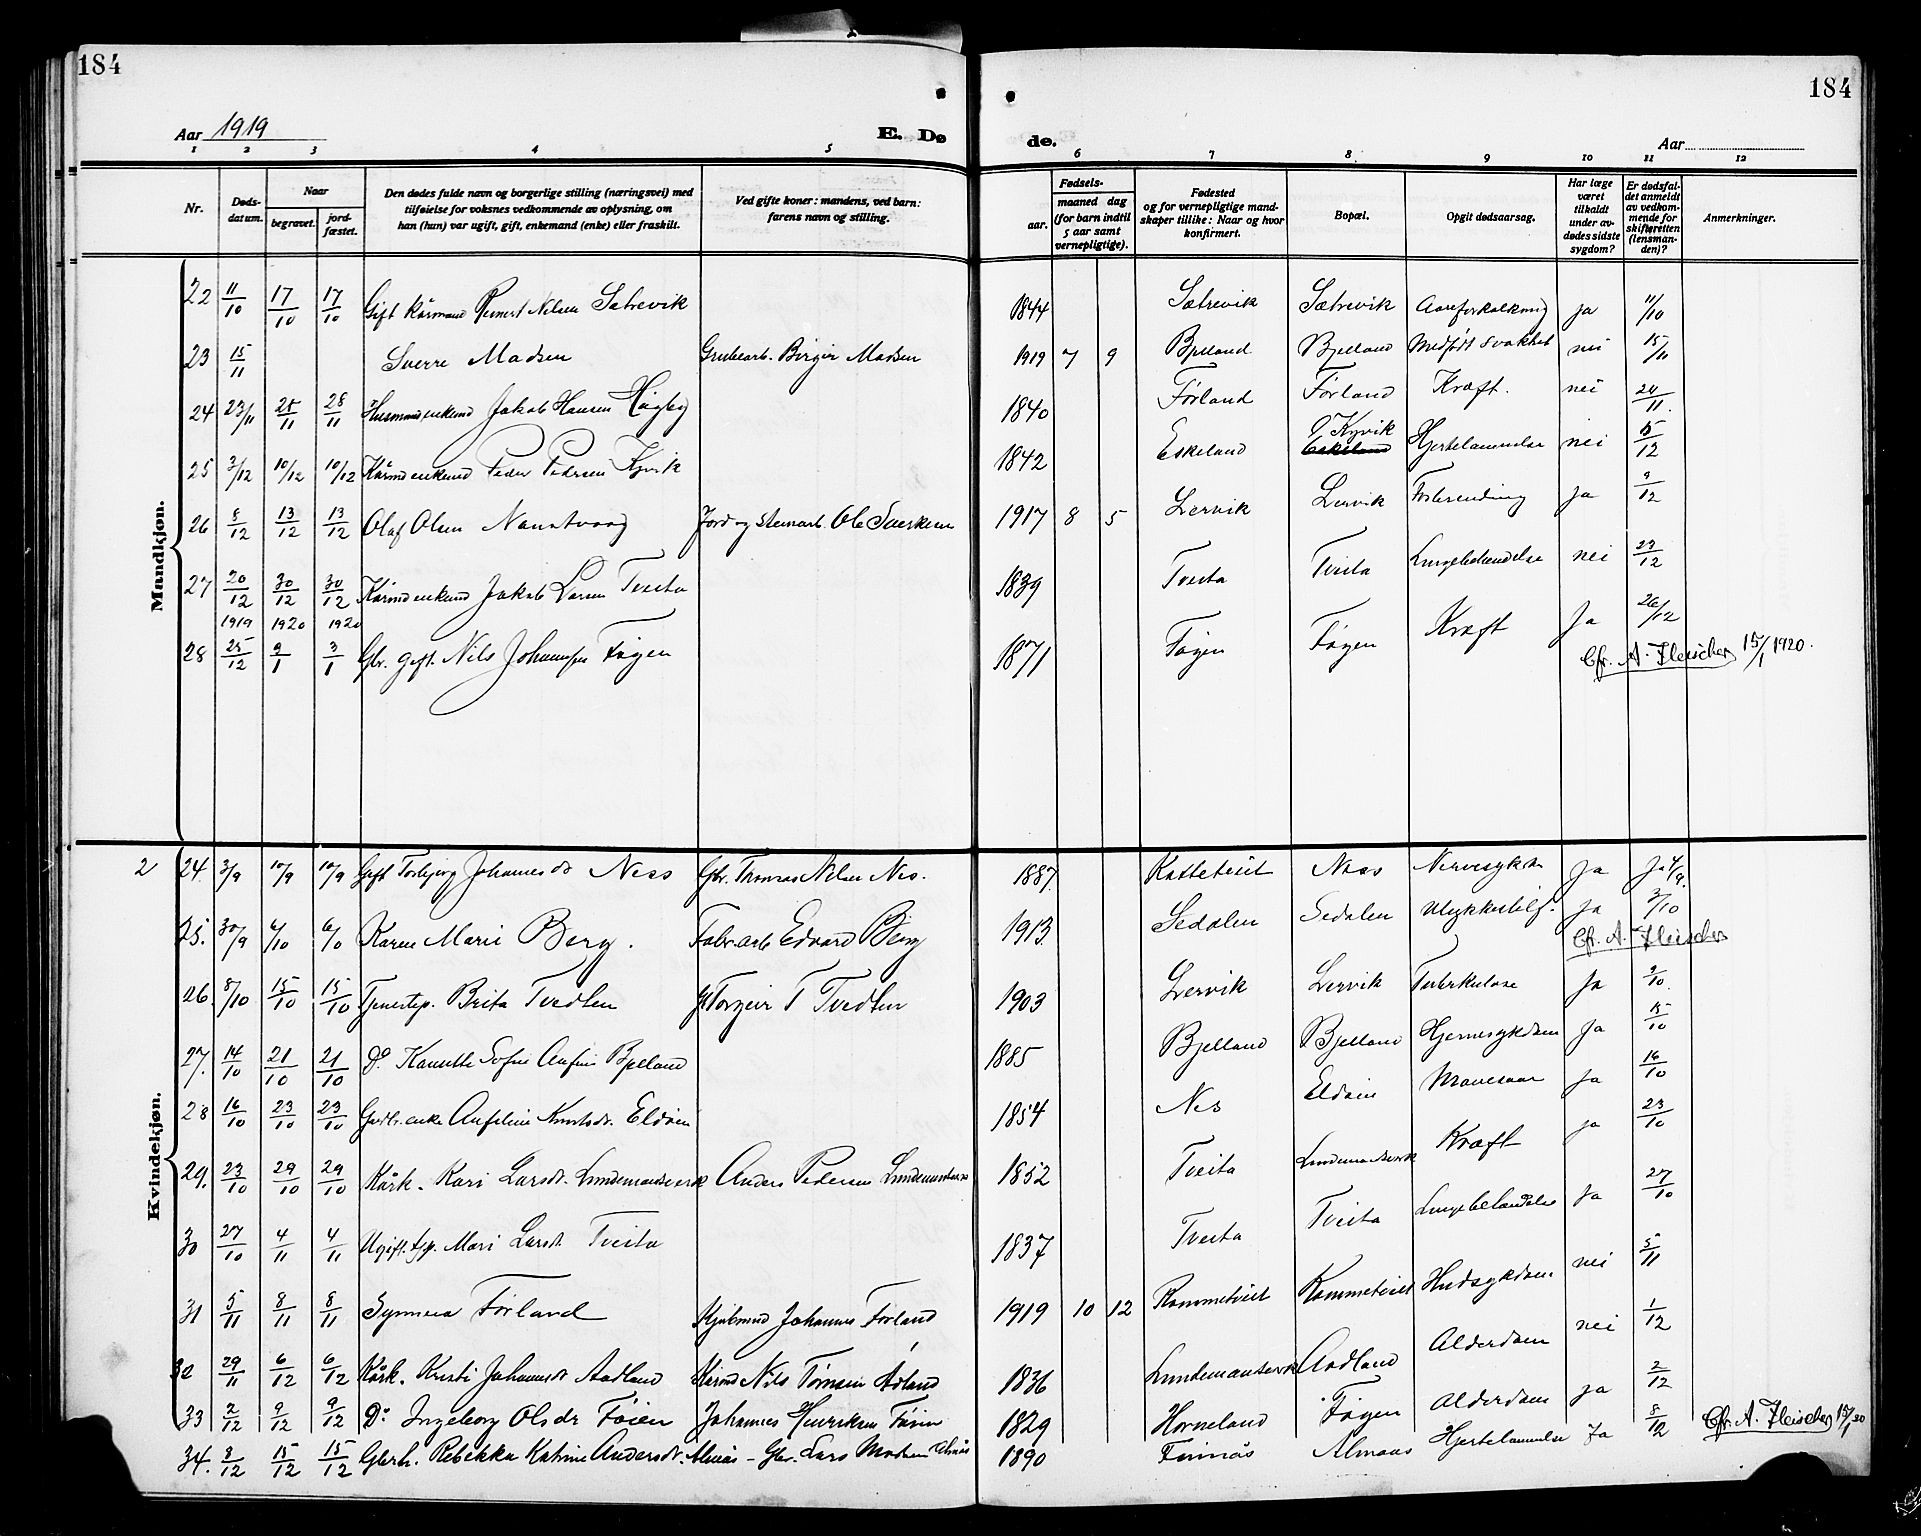 184
184
Aar 1919
E. Dø
de.
Aar
1 2 3 4 5 6 7 8 9 10 11 12
Nr.
Døds-datum.
Naar
begravet.
jord-fæstet.
Den dødes fulde navn og borgerlige stilling (næringsvei) med tilføielse for voksnes vedkommende av oplysning, om han (hun) var ugift, gift, enkemand (enke) eller fraskilt.
Ved gifte koner: mandens, ved barn: farens navn og stilling.
Fødsels-
aar.
maaned dag
(for barn indtil 5 aar samt vernepligtige).
Fødested og for vernepligtige mandskaper tillike: Naar og hvor konfirmert.
Bopæl.
Opgit dødsaarsag.
Har læge været tilkaldt under avdødes sidste sygdom?
Er dødsfaldet anmeldt av vedkommende for skifteretten (lensmanden)?
Anmerkninger.
Mandkjøn.
22 11/10 17/10 17/10 Gift Kårmand Reinert Nilsen Sætrevik 1844 Sætrevik Sætrevik Aareforkalkning ja 11/10
23 15/11 Sverre Madsen Grubearb. Birger Madsen 1919 7 9 Bjelland Bjelland Medfødt svakhet nei 15/11
24 23/11 28/11 28/11 Husmand enkemd Jakob Hansen Høgby 1840 Førland Førland Kræft. nei 24/11.
25 3/12 10/12 10/12 Kårmd enkemd Peder Pedersen Kyvik 1842 Eskeland Kyvik Eskeland Hjertelammelse nei 15/12
26 8/12 13/12 13/12 Olaf Olsen Nonstvaag Jord- og stenarb. Ole Sverksen 1917 8 5 Lervik Lervik Forbrending ja 9/12
27 20/12 30/12 30/12 Kårmd enkemd Jakob Larsen Tveita 1839 Tveita Tveita Lungebetendelse nei 29/12
1919 1920 1920
28 25/12 2/1 3/1 Gbr. gift. Nils Johannesen Føyen 1871 Føyen Føyen Kræft Ja 26/12
Cfr. A. Fleischer 15/1 1920.
Kvindekjøn.
2 24. 3/9 10/9 10/9 Gift Torbjørg Johannesdr Ness Gbr. Thomas Nilsen Nes. 1887 Kattetveit Naas Nervesykdom Ja Ja 4/9.
25. 30/9 6/10 6/10 Karen Marie Berg. Fabr.arb Edvard Berg 1913 Sedalen Sedalen Ulykkestilf. ja 2/10
Cfr. A. Fleischer
26. 8/10 15/10 15/10 Tjenestep. Brita Tvedten Torgeir T Tvedten 1903 Lervik Lervik Tuberkulose Ja 9/10.
27. 14/10 21/10 21/10 Do. Kanutte Sofie Anfine Bjelland 1885 Bjelland Bjelland Hjernesykdom Ja 15/10
28 16/10 23/10 23/10 Gaardbr. enke Anfeline Knutsdr. Eldøen 1854 Nes Eldøin Mavesaar Ja 16/10
29. 23/10 29/10 29/10 Kårk. Kari Larsdr. Lundemansverk Anders Pedersen Lundemansverk 1852 Tveita Lundemansverk Kræft ja 23/10
30 27/10 4/11 4/11 Ugift tjp. Mari Larsdr Tveita 1837 Tveita Tveita Lungebetændelse Ja 27/10
31 5/11 8/11 8/11 Synneva Førland Kjøbmnd Johannes Førland 1919 10 12 Rommetveit Rommetveit Hudsykdom nei 5/11
32 29/11 6/12 6/12 Kårk. Kristi Johannesdr Aadland Kårmd Nils Tørresen Ådland 1836 Lundemansverk Aadland Alderdom nei 1/12
33 2/12 9/12 9/12 Do. Ingeborg Olsdr Føien Johannes Henriksen Føien 1829 Horneland Føyen Alderdom ja 2/12
34. 8/12 15/12 15/12 Gbrh. Rebekka Katrine Andersdr. Almås – Gbr. Lars Mathias Almås 1890 Finnås Almaas Hjertelammelse Ja 8/12
Cfr. A. Fleischer 15/1 20